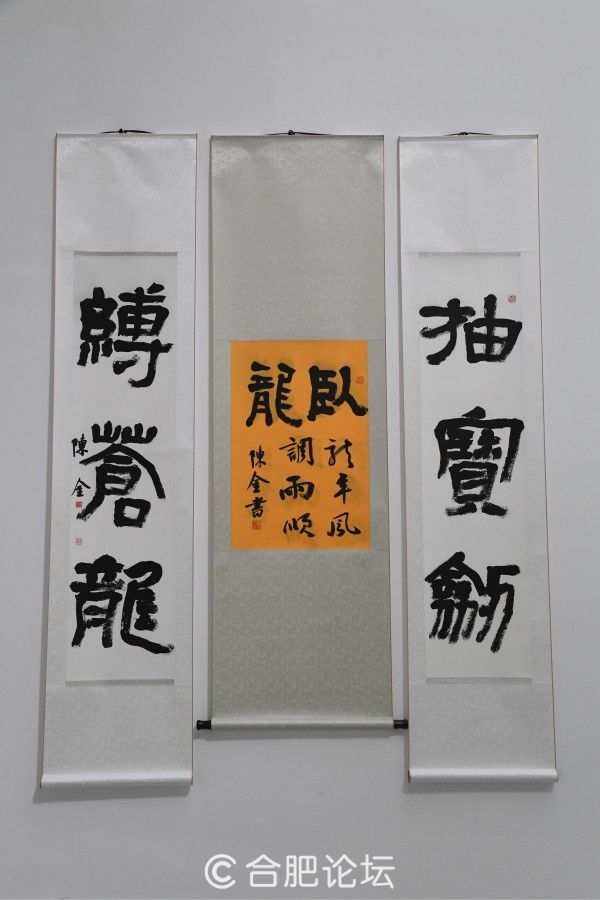 抽寶劒
臥龍
龍年風
調雨順
陳金書
縛蒼龍
陳金
合肥论坛